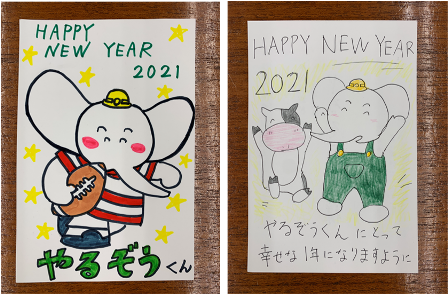 HAPPY
NEW YEAR
2021
やるぞうくん
HAPPY NEW YEAR
2021
やるぞうくんにとって
幸せな1年になりますように